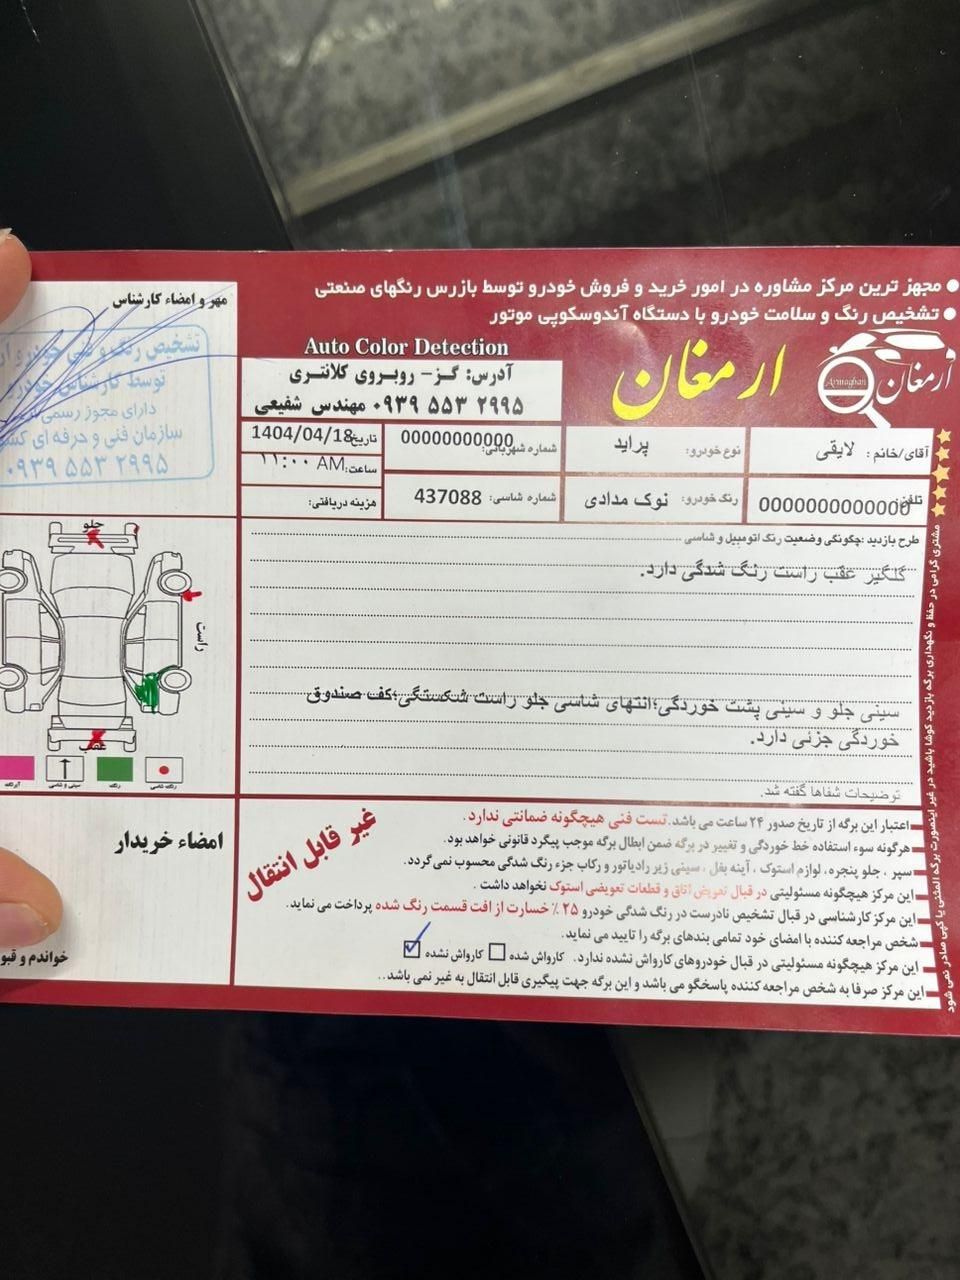 ● مجهز ترین مرکز مشاوره در امور خرید و فروش خودرو توسط بازرس رنگهای صنعتی
● تشخیص رنگ و سلامت خودرو با دستگاه آندوسکوپی موتور
ارمغان
Armaghan
ارمغان
Auto Color Detection
آدرس: گز- روبروی کلانتری
۰۹۳۹ ۵۵۳ ۲۹۹۵ مهندس شفیعی
مهر و امضاء کارشناس
تشخیص رنگ و فنی خودرو
توسط کارشناس خودرو
دارای مجوز رسمی
سازمان فنی و حرفه ای
۰۹۳۹ ۵۵۳ ۲۹۹۵
آقای/خانم : لایقی
نوع خودرو: پراید
شماره شهربانی: 00000000000
تاریخ: 1404/04/18
ساعت: ۱۱:۰۰ AM
تلفن: 0000000000000
رنگ خودرو: نوک مدادی
شماره شاسی: 437088
هزینه دریافتی:
طرح بازدید :چگونگی وضعیت رنگ اتومبیل و شاسی
گلگیر عقب راست رنگ شدگی دارد.
سینی جلو و سینی پشت خوردگی؛انتهای شاسی جلو راست شکستگی؛کف صندوق
خوردگی جزئی دارد.
توضیحات شفاها گفته شد.
جلو
راست
عقب
رنگ شاسی
رنگ
سینی و شاسی
آبرنگ
اعتبار این برگه از تاریخ صدور ۲۴ ساعت می باشد. تست فنی هیچگونه ضمانتی ندارد.
هرگونه سوء استفاده خط خوردگی و تغییر در برگه ضمن ابطال برگه موجب پیگرد قانونی خواهد بود.
سپر ، جلو پنجره، لوازم استوک ، آینه بغل ، سینی زیر رادیاتور و رکاب جزء رنگ شدگی محسوب نمی گردد.
این مرکز هیچگونه مسئولیتی در قبال تعویض اتاق و قطعات تعویضی استوک نخواهد داشت .
این مرکز کارشناسی در قبال تشخیص نادرست در رنگ شدگی خودرو ۲۵ ٪ خسارت از افت قسمت رنگ شده پرداخت می نماید.
شخص مراجعه کننده با امضای خود تمامی بندهای برگه را تایید می نماید.
این مرکز هیچگونه مسئولیتی در قبال خودروهای کارواش نشده ندارد. کارواش شده کارواش نشده
این مرکز صرفا به شخص مراجعه کننده پاسخگو می باشد و این برگه جهت پیگیری قابل انتقال به غیر نمی باشد..
غیر قابل انتقال
امضاء خریدار
خواندم و
مشتری گرامی در حفظ و نگهداری برگه بازدید کوشا باشید در غیر اینصورت برگه المثنی یا کپی صادر نمی شود